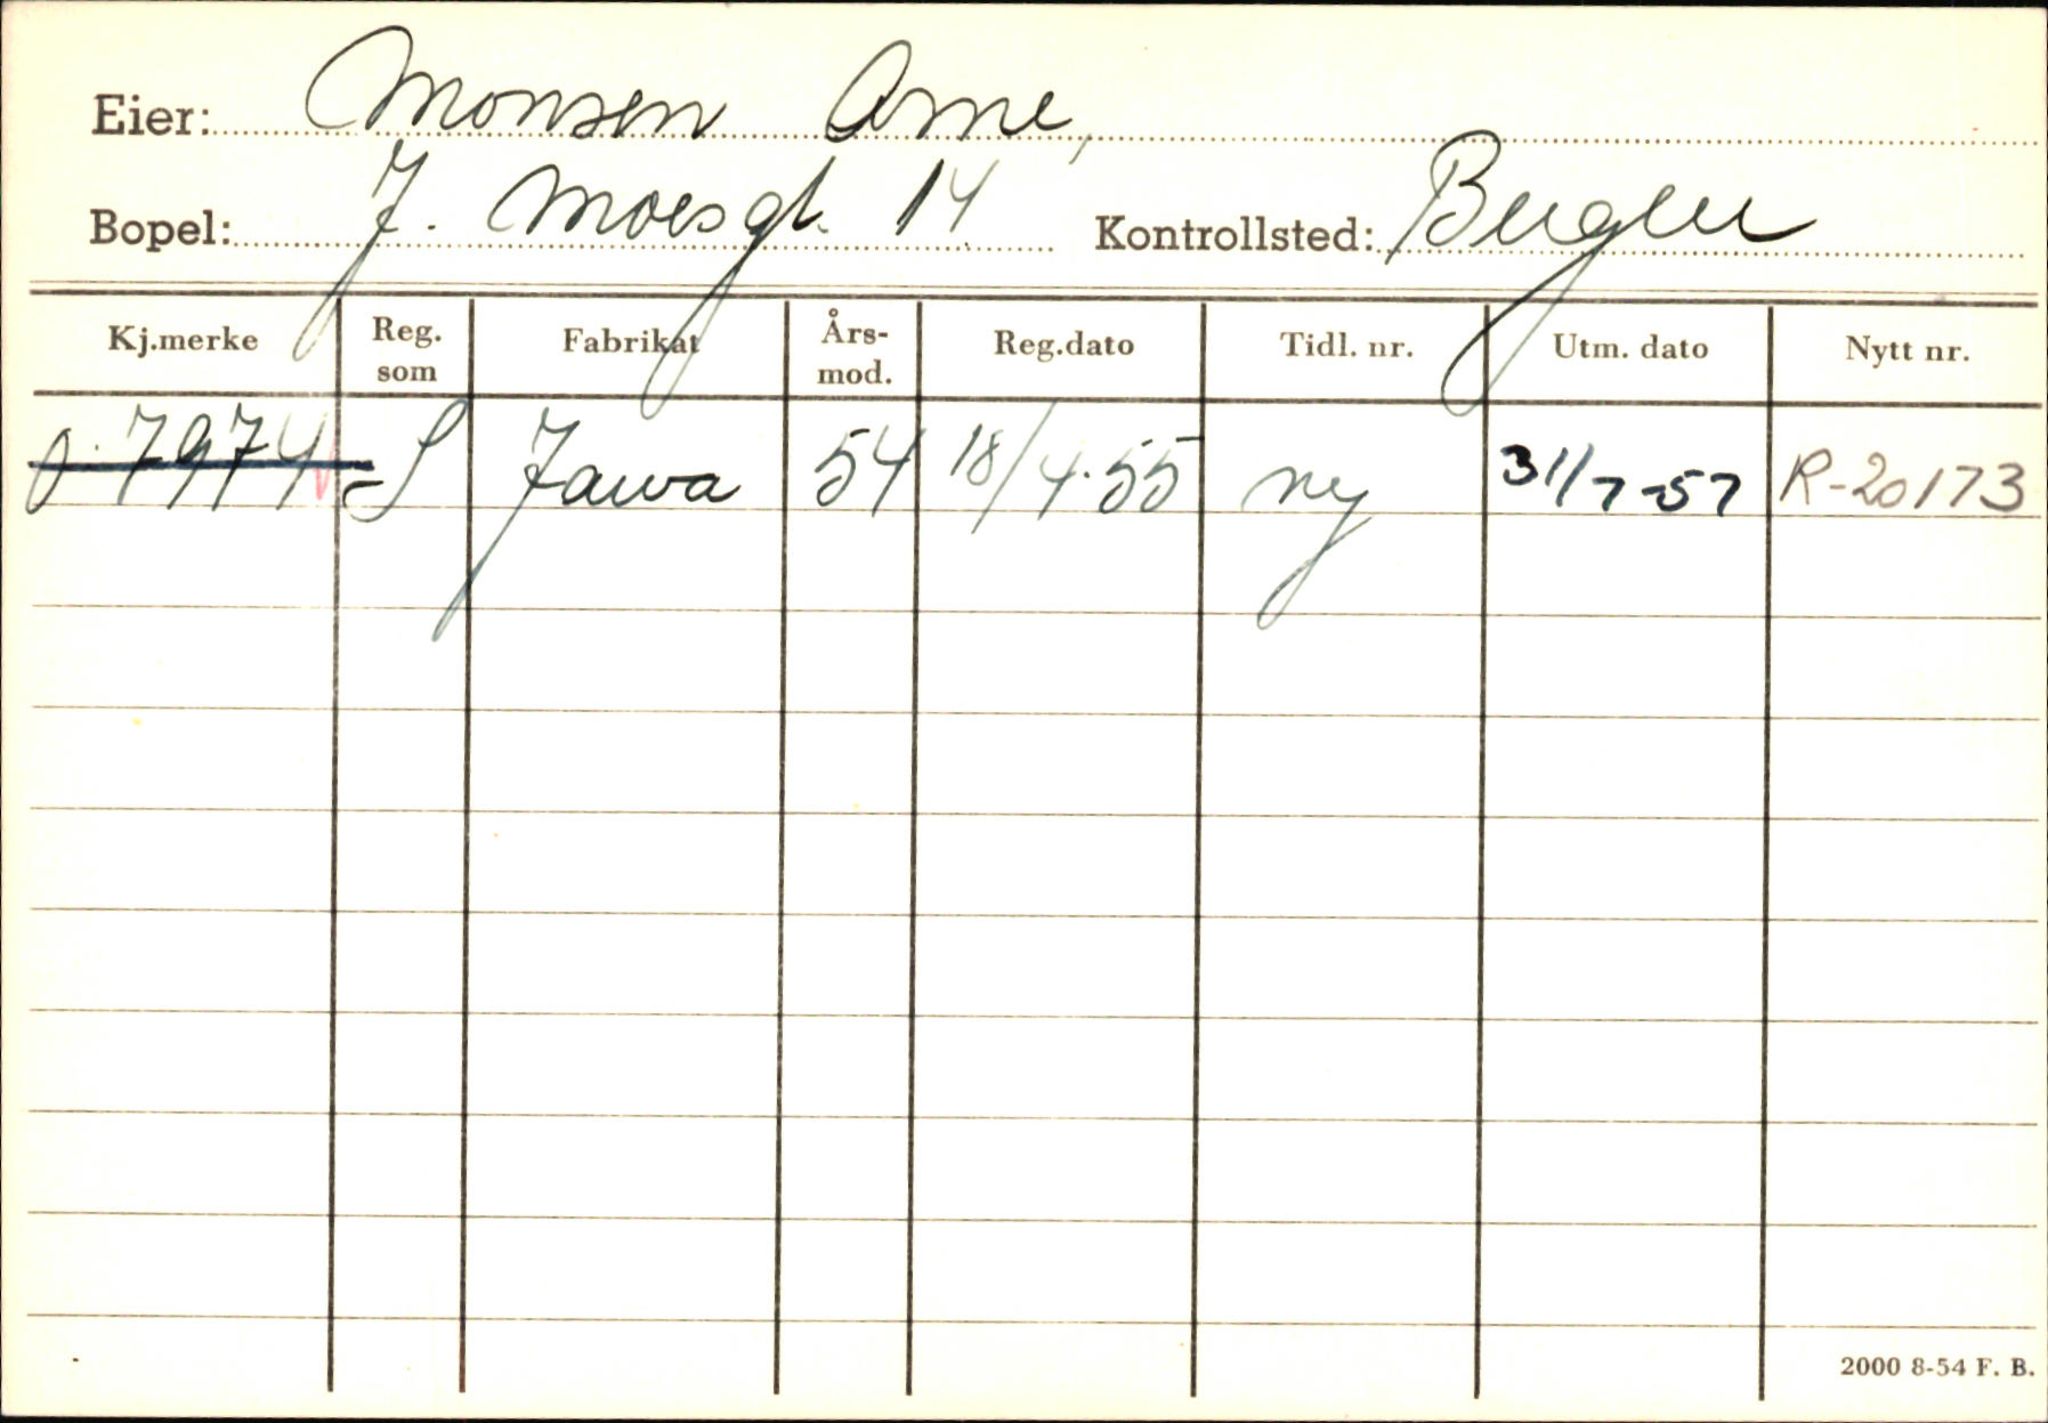 Eier: Monsen Arne,
Bopel: J. Moesgt. 14 Kontrollsted: Bergen
Kj.merke Reg. som Fabrikat Års-mod. Reg.dato Tidl. nr. Utm. dato Nytt nr.
O. 7974 S Jawa 54 18/4.55 ny 31/7-57 R-20173
2000 8-54 F. B.